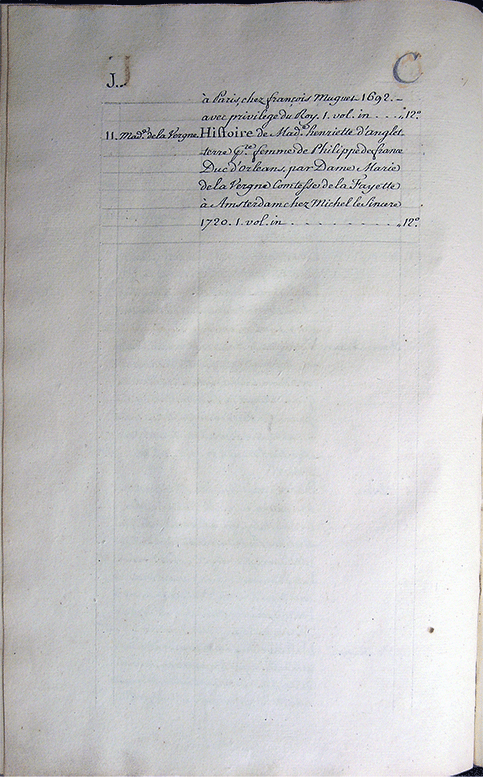 J. C
à Paris, chez françois Muguet 1692. –
avec privilege du Roy. 1. vol. in . . . . 12°.
11. Mad.e de la Vergne. Histoire de Mad.e henriette d'anglet
terre femme de Philippe de france
Duc d'orleans, par Dame Marie
de la Vergne Comtesse de la Fayette
à Amsterdam chez Michel le Sincere
1720. 1. vol. in . . . . . . . . 12°.